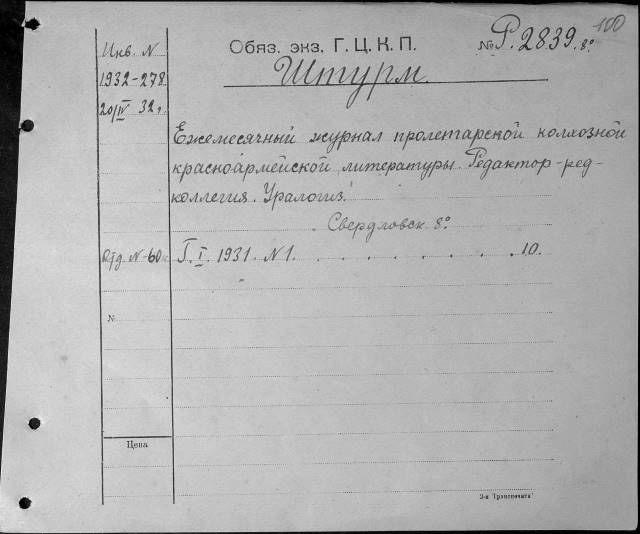 100
Инв. N
1932-278
20/IV 32 г.
Обяз. экз. Г.Ц.К.П.
№ Р. 2839. 8°
Штурм.
Ежемесячный журнал пролетарской колхозной
красноармейской литературы. Редактор-ред-
коллегия. Уралогиз.
Свердловск 8°.
Отд. N-60к. Г. I. 1931. N1. . . . . . . . 10.
№
Цена